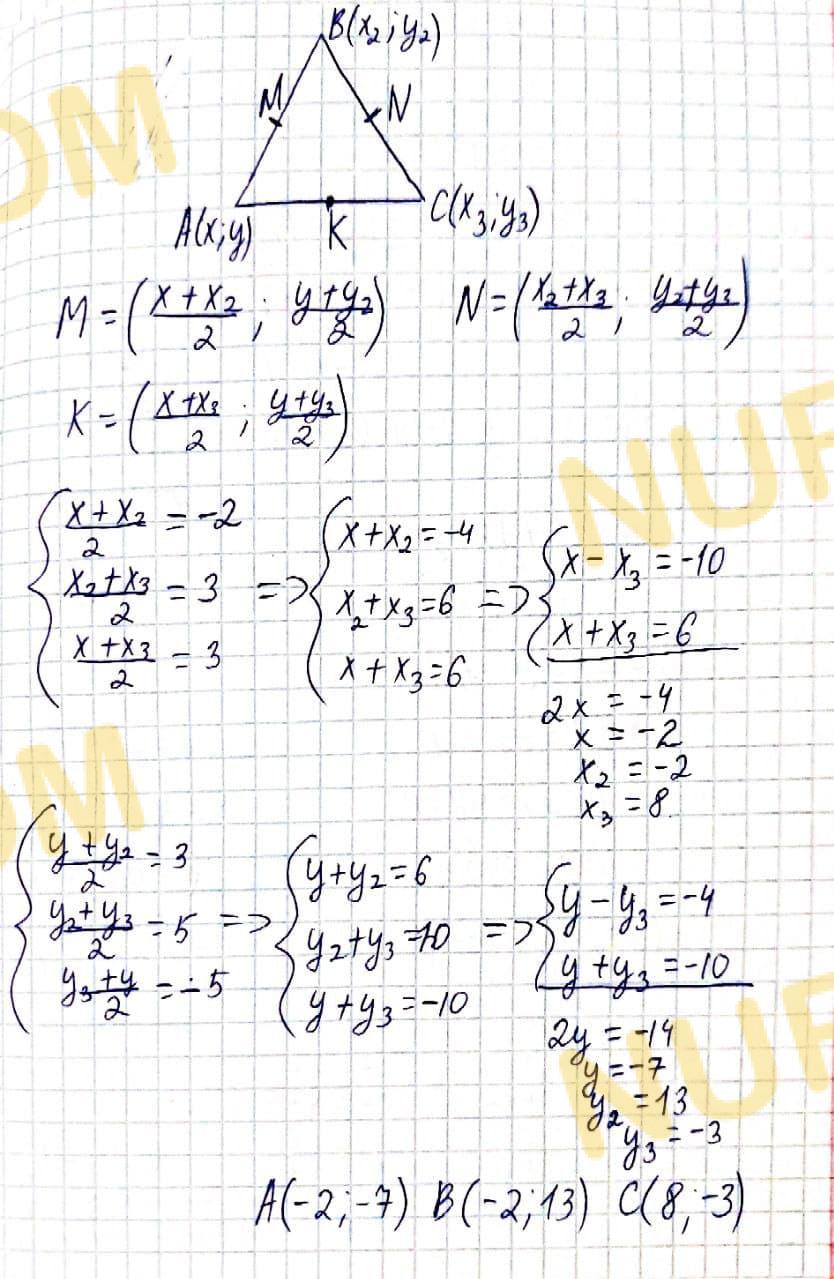 B(x₂;y₂)
M N
A(x;y) K C(x₃;y₃)
M = ((x+x₂)/2 ; (y+y₂)/2) N = ((x₂+x₃)/2 ; (y₂+y₃)/2)
K = ((x+x₃)/2 ; (y+y₃)/2)
{ (x+x₂)/2 = -2 { x+x₂ = -4 { x - x₃ = -10
(x₂+x₃)/2 = 3 => x₂+x₃ = 6 => x + x₃ = 6
(x+x₃)/2 = 3 x + x₃ = 6
2x = -4
x = -2
x₂ = -2
x₃ = 8
{ (y+y₂)/2 = 3 { y+y₂ = 6 { y - y₃ = -4
(y₂+y₃)/2 = 5 => y₂+y₃ = 10 => y + y₃ = -10
(y₃+y)/2 = -5 y + y₃ = -10
2y = -14
y = -7
y₂ = 13
y₃ = -3
A(-2;-7) B(-2;13) C(8;-3)
OM
NUR
OM
NUR